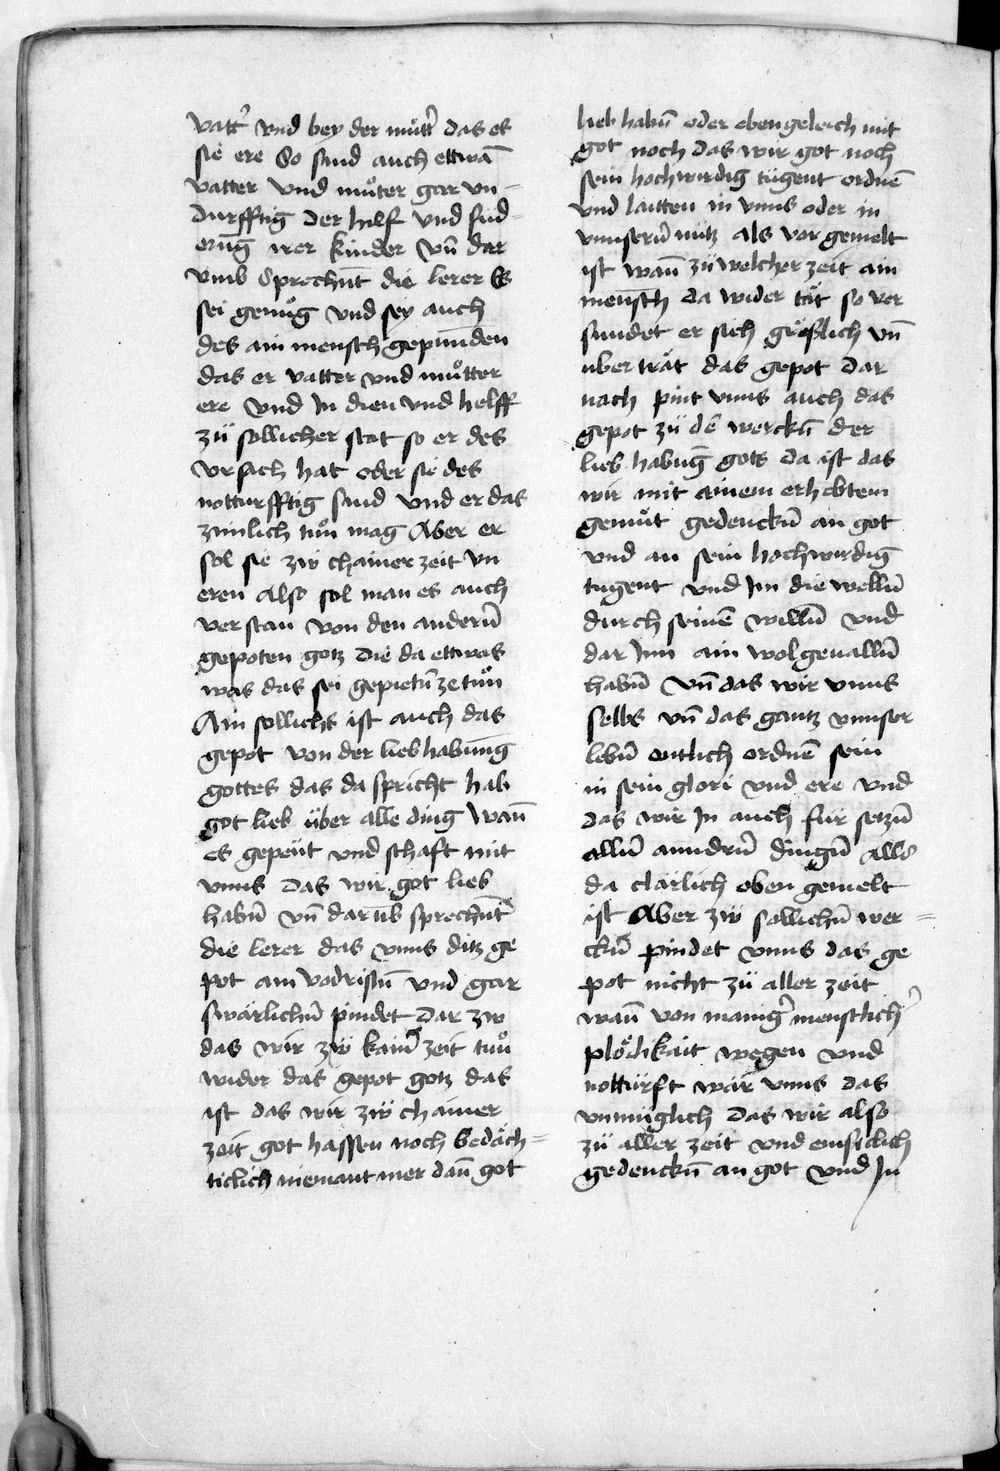 vatt᷑ vnd bey der mūtt᷑ das es
sie ere So sind auch ettwā
vatter vnd muͦter gar vn-
durfftig der hilf vnd fud=
erūg irer kinder vn̄ dar
vmb Sprechn̄t die lerer Es
sei genuͦg vnd sey auch
des ain mensch gepunden
das er vatter vnd muͦtter
ere vnd In dien vnd helff
zü sollicher stat so er des
vrsach hat oder sie des
notturfftig sind vnd er das
zimlich tuͦn mag Aber er
sol sie zw̎ chainer zeit vn
eren Also sol man es auch
verstan von den anderū
gepoten gotz die da ettwas
was das sei gepietn̄ ze tuͦn
Ain sollichs ist auch das
gepot von der liebhabung
gottes das da spricht hab
got lieb über alle ding Wan̄
es gepeüt vnd schaft mit
vnns das wir got lieb
habn̄ vn̄ darūb sprechn̄t
die lerer das vnns ditz ge
pot am vodristn̄ vnd gar
swärlichn̄ pindet Dar zw
das wir zw̎ kain᷑ zeit tuͦn
wider das gepot gotz das
ist das wir zw̎ chainer
zeit got hassen noch bedäch=
ticlich niemant mer dan̄ got
lieb habn̄ oder ebengeleich mit
got noch das wir got noch
sein hochwirdig tügent ordnē
vnd laitten in vnns oder in
vnnserū nütz als vor gemelt
ist wan̄ zü welcher zeit ain
mensch da wider tät so ver
sundet er sich grösslich vn̄
uber trät das gepot Dar
nach pint vnns auch das
gepot zü dē werckn̄ der
lieb habūg gots da ist das
wir mit ainem erhebtem
gemuͤt gedenckn̄ an got
vnd an sein hochwirdig
tugent vnd Im die welln̄
durch seinē willn̄ vnd
dar Inn ain wolgeualln̄
habn̄ vn̄ das wir vnns
selbs vn̄ das gantz vnnser
lebn̄ entlich ordnē sein
in sein glori vnd ere vnd
das wir In auch für setzn̄
alln̄ anndern̄ dingn̄ Alls
da clärlich oben gemelt
ist Aber zw̎ sollichn̄ wer=
ckn̄ pindet vnns das ge
pot nicht zü aller zeit
wan̄ von manig᷑ menstlich᷑
plödikait wegen vnd
notturft wär vnns das
vnmüglich das wir also
zü aller zeit vnd emsiclich
gedenckn̄ an got vnd In